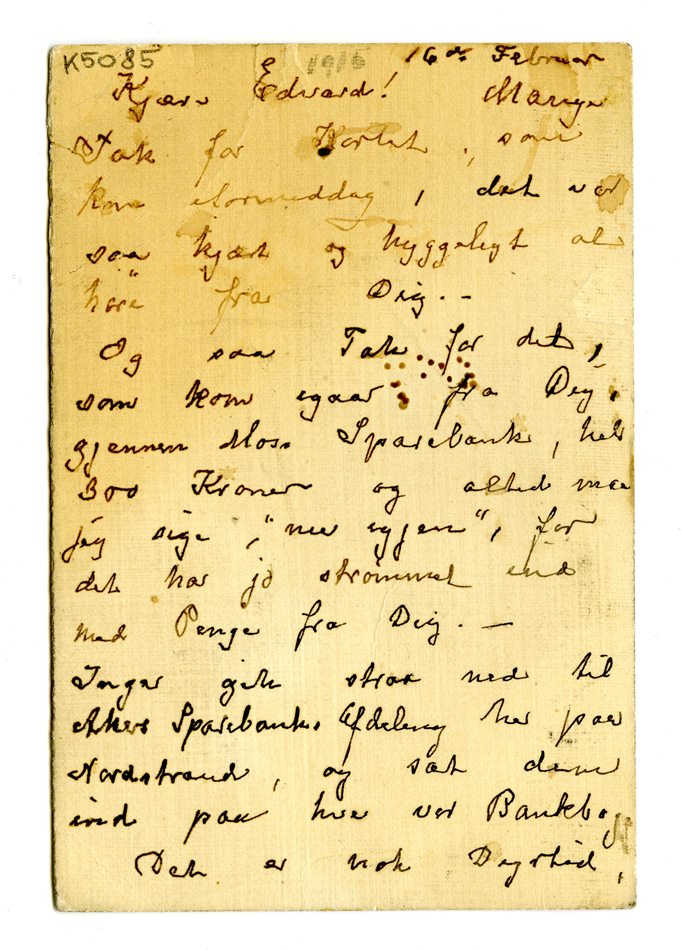 K5085 1916 16de Februar
Kjære Edvard! Mange
Tak for Kortet, som
kom iformiddag, det var
saa kjært og hyggeligt at
høre fra Dig. -
Og saa Tak for det,
som kom igaar fra Dig,
gjennem Moss Sparebank, hele
300 Kroner og altid maa
jeg sige, "nu igjen", for
det har jo strømmet ind
med Penge fra Dig. —
Inger gik strax ned til
Akers Sparebanks Afdeling her paa
Nordstrand, og sat dem
ind paa hver vor Bankbog
Det er nok Dyrtid,